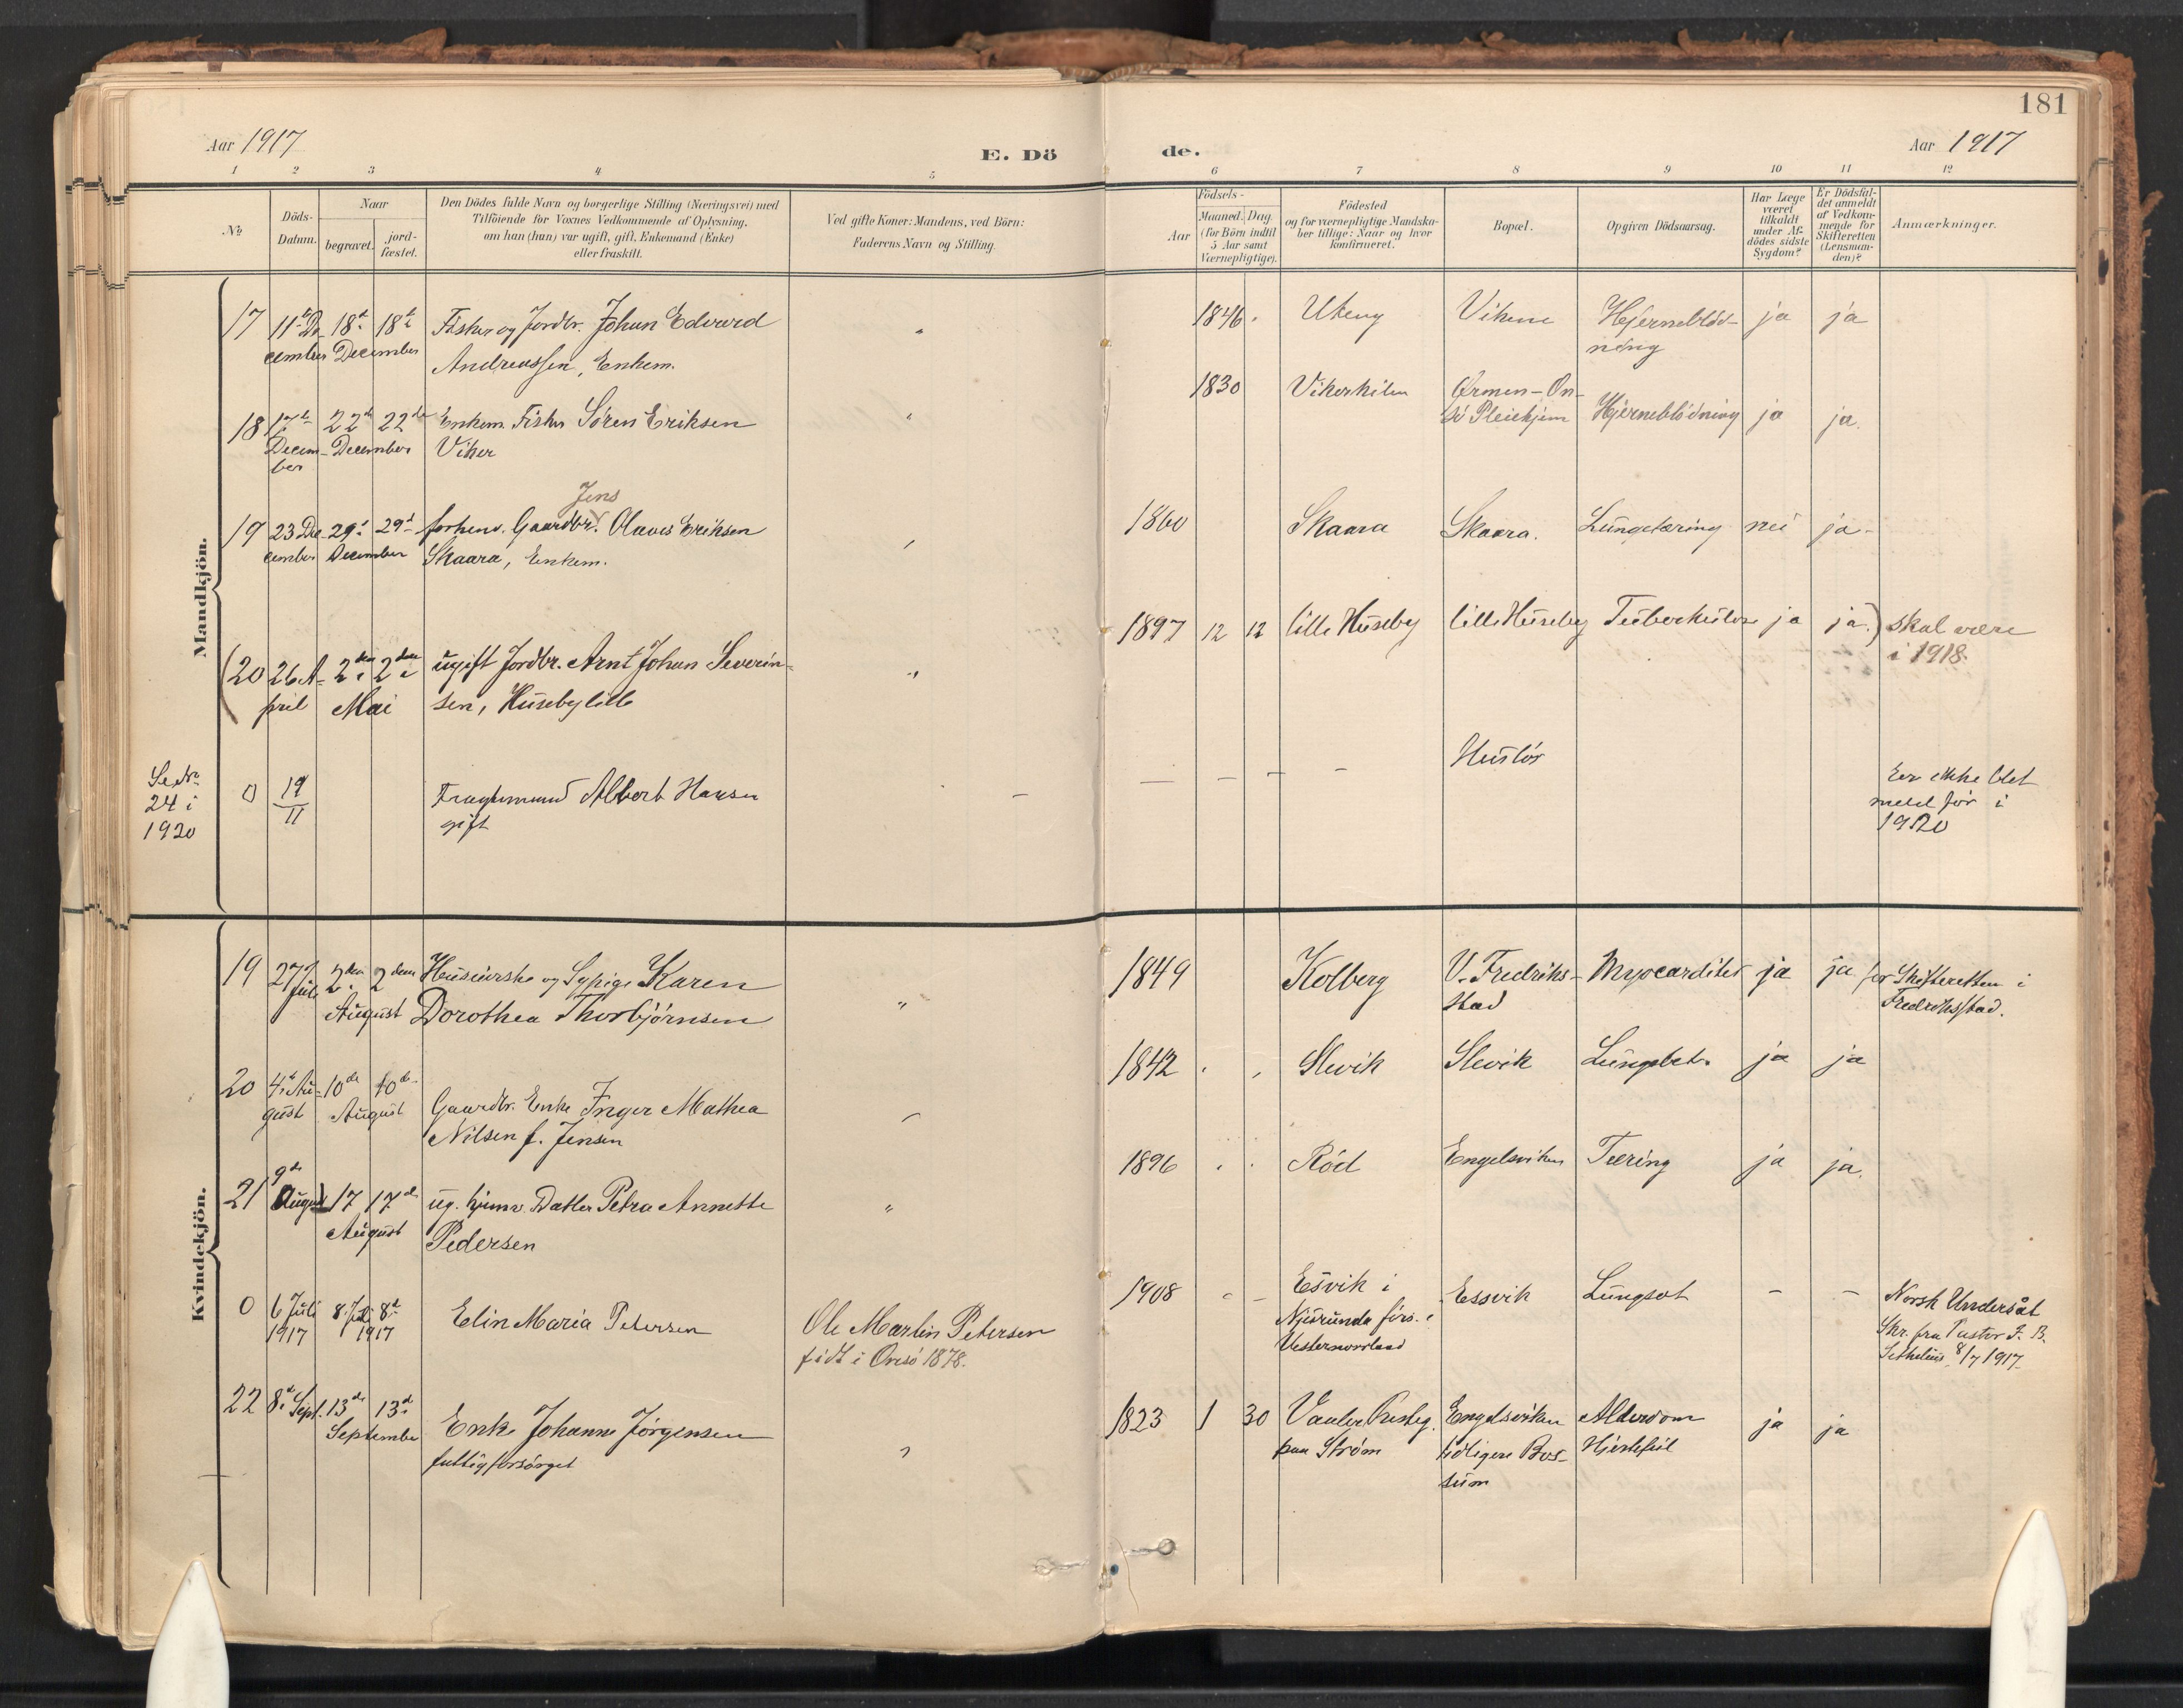 181
Aar 1917
E. Dö
de.
Aar 1917
1 2 3 4 5 6 7 8 9 10 11 12
No
Döds-
Datum.
Naar
begravet.
jord-
fæstet.
Den Dödes fulde Navn og borgerlige Stilling (Næringsvei) med
Tilföiende for Voxnes Vedkommende af Oplysning,
om han (hun) var ugift, gift, Enkemand (Enke)
eller fraskilt.
Ved gifte Koner: Mandens, ved Börn:
Faderens Navn og Stilling.
Födsels-
Aar
Maaned. Dag.
(for Börn indtil
5 Aar samt
Værnepligtige).
Födested
og for værnepligtige Mandska-
ber tillige: Naar og hvor
konfirmeret.
Bopæl.
Opgiven Dödsaarsag.
Har Læge
været
tilkaldt
under Af-
dödes sidste
Sygdom?
Er Dödsfal-
det anmeldt
af Vedkom-
mende for
Skifteretten
(Lensman-
den)?
Anmærkninger.
Mandkjön.
17 11te De- 18de 18de Fisker og Jordbr. Johan Edvard " 1846 Ukeng Vikene Hjerneblöd- ja ja
cember December Andreassen, Enkem. ning
18 17de 22de 22de Enkem. Fisker Sören Eriksen " 1830 Vikerkilen Ørmen-On- Hjerneblödning ja ja.
Decem- December Viker sö Pleiehjem
ber
Jens
19 23 De- 29de 29de forhenv. Gaardbr. Olaves Eriksen 1860 Skaara Skaara. Lungetæring nei ja.
cember December Skaara, Enkem.
(20 26 A- 2den 2den ugift Jordbr. Arnt Johan Severin- " 1897 12 12 Lille Huseby Lille Huseby Tuberkulose ja ja.) skal være
pril Mai sen, Huseby lille i 1918.
Se No
24 i
1920
0 19/11 Fragtemand Albert Hansen - - - - - Huslös Er ikke blet
gift meld för i
1920
Kvindekjön.
19 27 2den 2den Husierske og Sypige Karen " 1849 Kolberg V. Fredrik- Myocarditer ja ja for Skifteretten i
Juli August Dorothea Thorbjörnsen stad Fredrikstad.
20 4de Au- 10de 10de Gaardbr. Enke Inger Mathea 1842 Slevik Slevik Lungebet. ja ja
gust August Nilsen f. Jensen
21 9de August 17 17de ug. hjemv. Datter Petra Annette " 1896 Röd Engelsviken Tæring ja ja.
August Pedersen
0 6 Juli 8. Juli 8de Elin Maria Petersen Ole Martin Petersen 1908 - - Esvik i Essvik Lungsot - - Norsk Undersåt
1917 1917 född i Onsö 1878. Njurunda förs. i Skr. fra Pastor F. B.
Vesternorrland Sethelius 8/7 1917
22 8de Sept. 13de 13de Enke Johanne Jörgensen 1823 1 30 Vanler Presteg. Engelsviken Alderdom ja ja
September fattigforsörget paa Ström tidligere Bos- Hjertefeil
sum